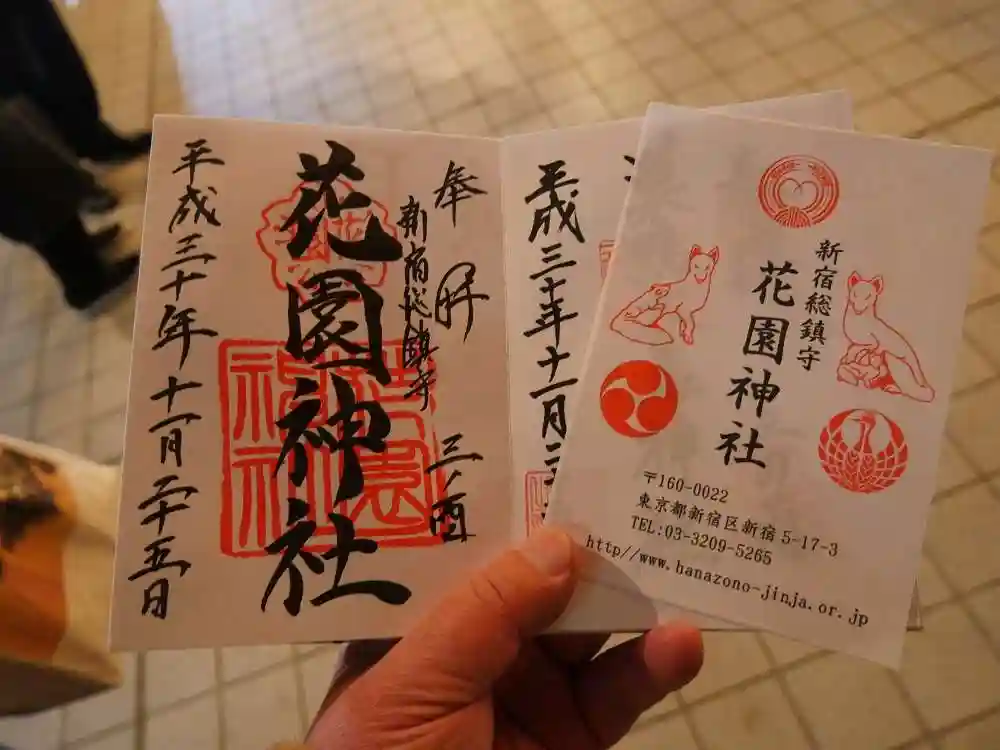 奉拝
三ノ酉
新宿総鎮守
花園神社
平成三十年十一月二十五日
平成三十年十一月二
新宿総鎮守
花園神社
〒160-0022
東京都新宿区新宿5-17-3
TEL:03-3209-5265
http//www.hanazono-jinja.or.jp